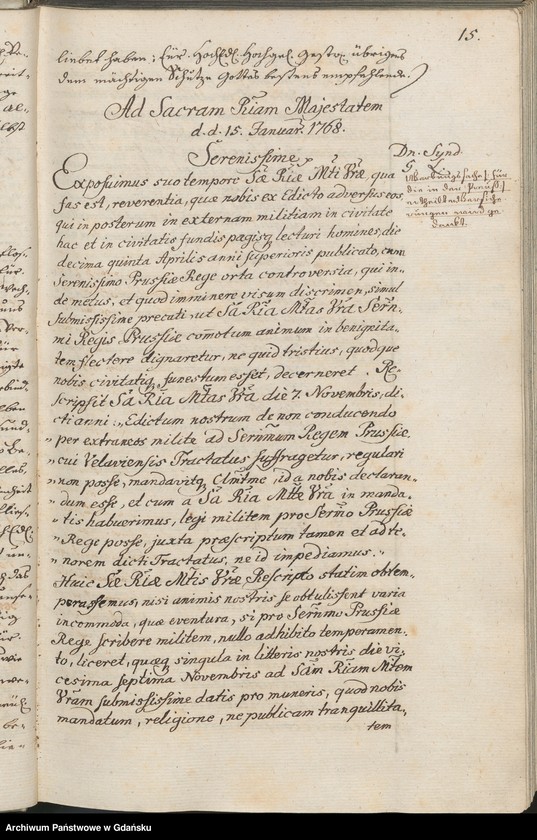 15.
liebet haben; Eür. HochEdl. Hochgel. Gestr. übrigens
dem mächtigen Schutze Gottes bestens empfehlende.
Ad Sacram Riam Majestatem
d. d. 15. Januar. 1768.
Serenissime
Dn. Synd.
Exposuimus suo tempore Sæ Riæ Mti Vræ, qua
fas est, reverentia, quæ nobis ex Edicto adversus eos,
qui in posterum in externam militiam in civitate
hac et in civitatis fundis pagisq lecturi homines, die
decima quinta Aprilis anni superioris publicato, cum
Serenissimo Prussiæ Rege orta controversia, qui in,
de metus, et quod imminere visum discrimen, simul
submississime precati, ut Sa Ria Mtas Vra Serñ,
mi Regis Prussiæ com̄otum animum in benignita,
tem flectere dignaretur, ne quid tristius, quodque
nobis civitatiq funestum esset, decerneret. Re,
scripsit Sa Ria Mtas Vra die 7. Novembris, di,
cti anni: „Edictum nostrum de non conducendo
„per extraneos milite ad Serñmum Regem Prussiæ,
„cui Velaviensis Tractatus suffragetur, regulari
„non posse, mandavitq Clmtme, id a nobis declaran,
„dum esse, et cum a Sa Ria Mtte Vra in manda,
„tis habuerimus, legi militem pro Sermo Prussiæ
„Rege posse, juxta præscriptum tamen et ad te,
„norem dicti Tractatus, ne id impediamus.„
Huic Sæ Riæ Mtis Vræ Rescripto statim obtem,
perassemus, nisi animis nostris se obtulissent varia
incommoda, quæ eventura, si pro Serñmo Prussiæ
Rege scribere militem, nullo adhibito temperamen,
to, liceret, quæq singula in litteris nostris die vi,
cesima septima Novembris ad Sam Riam Mtem
Vram submississime datis pro muneris, quod nobis
mandatum, religione, ne publicam tranquillita,
tem
Archiwum Państwowe w Gdańsku